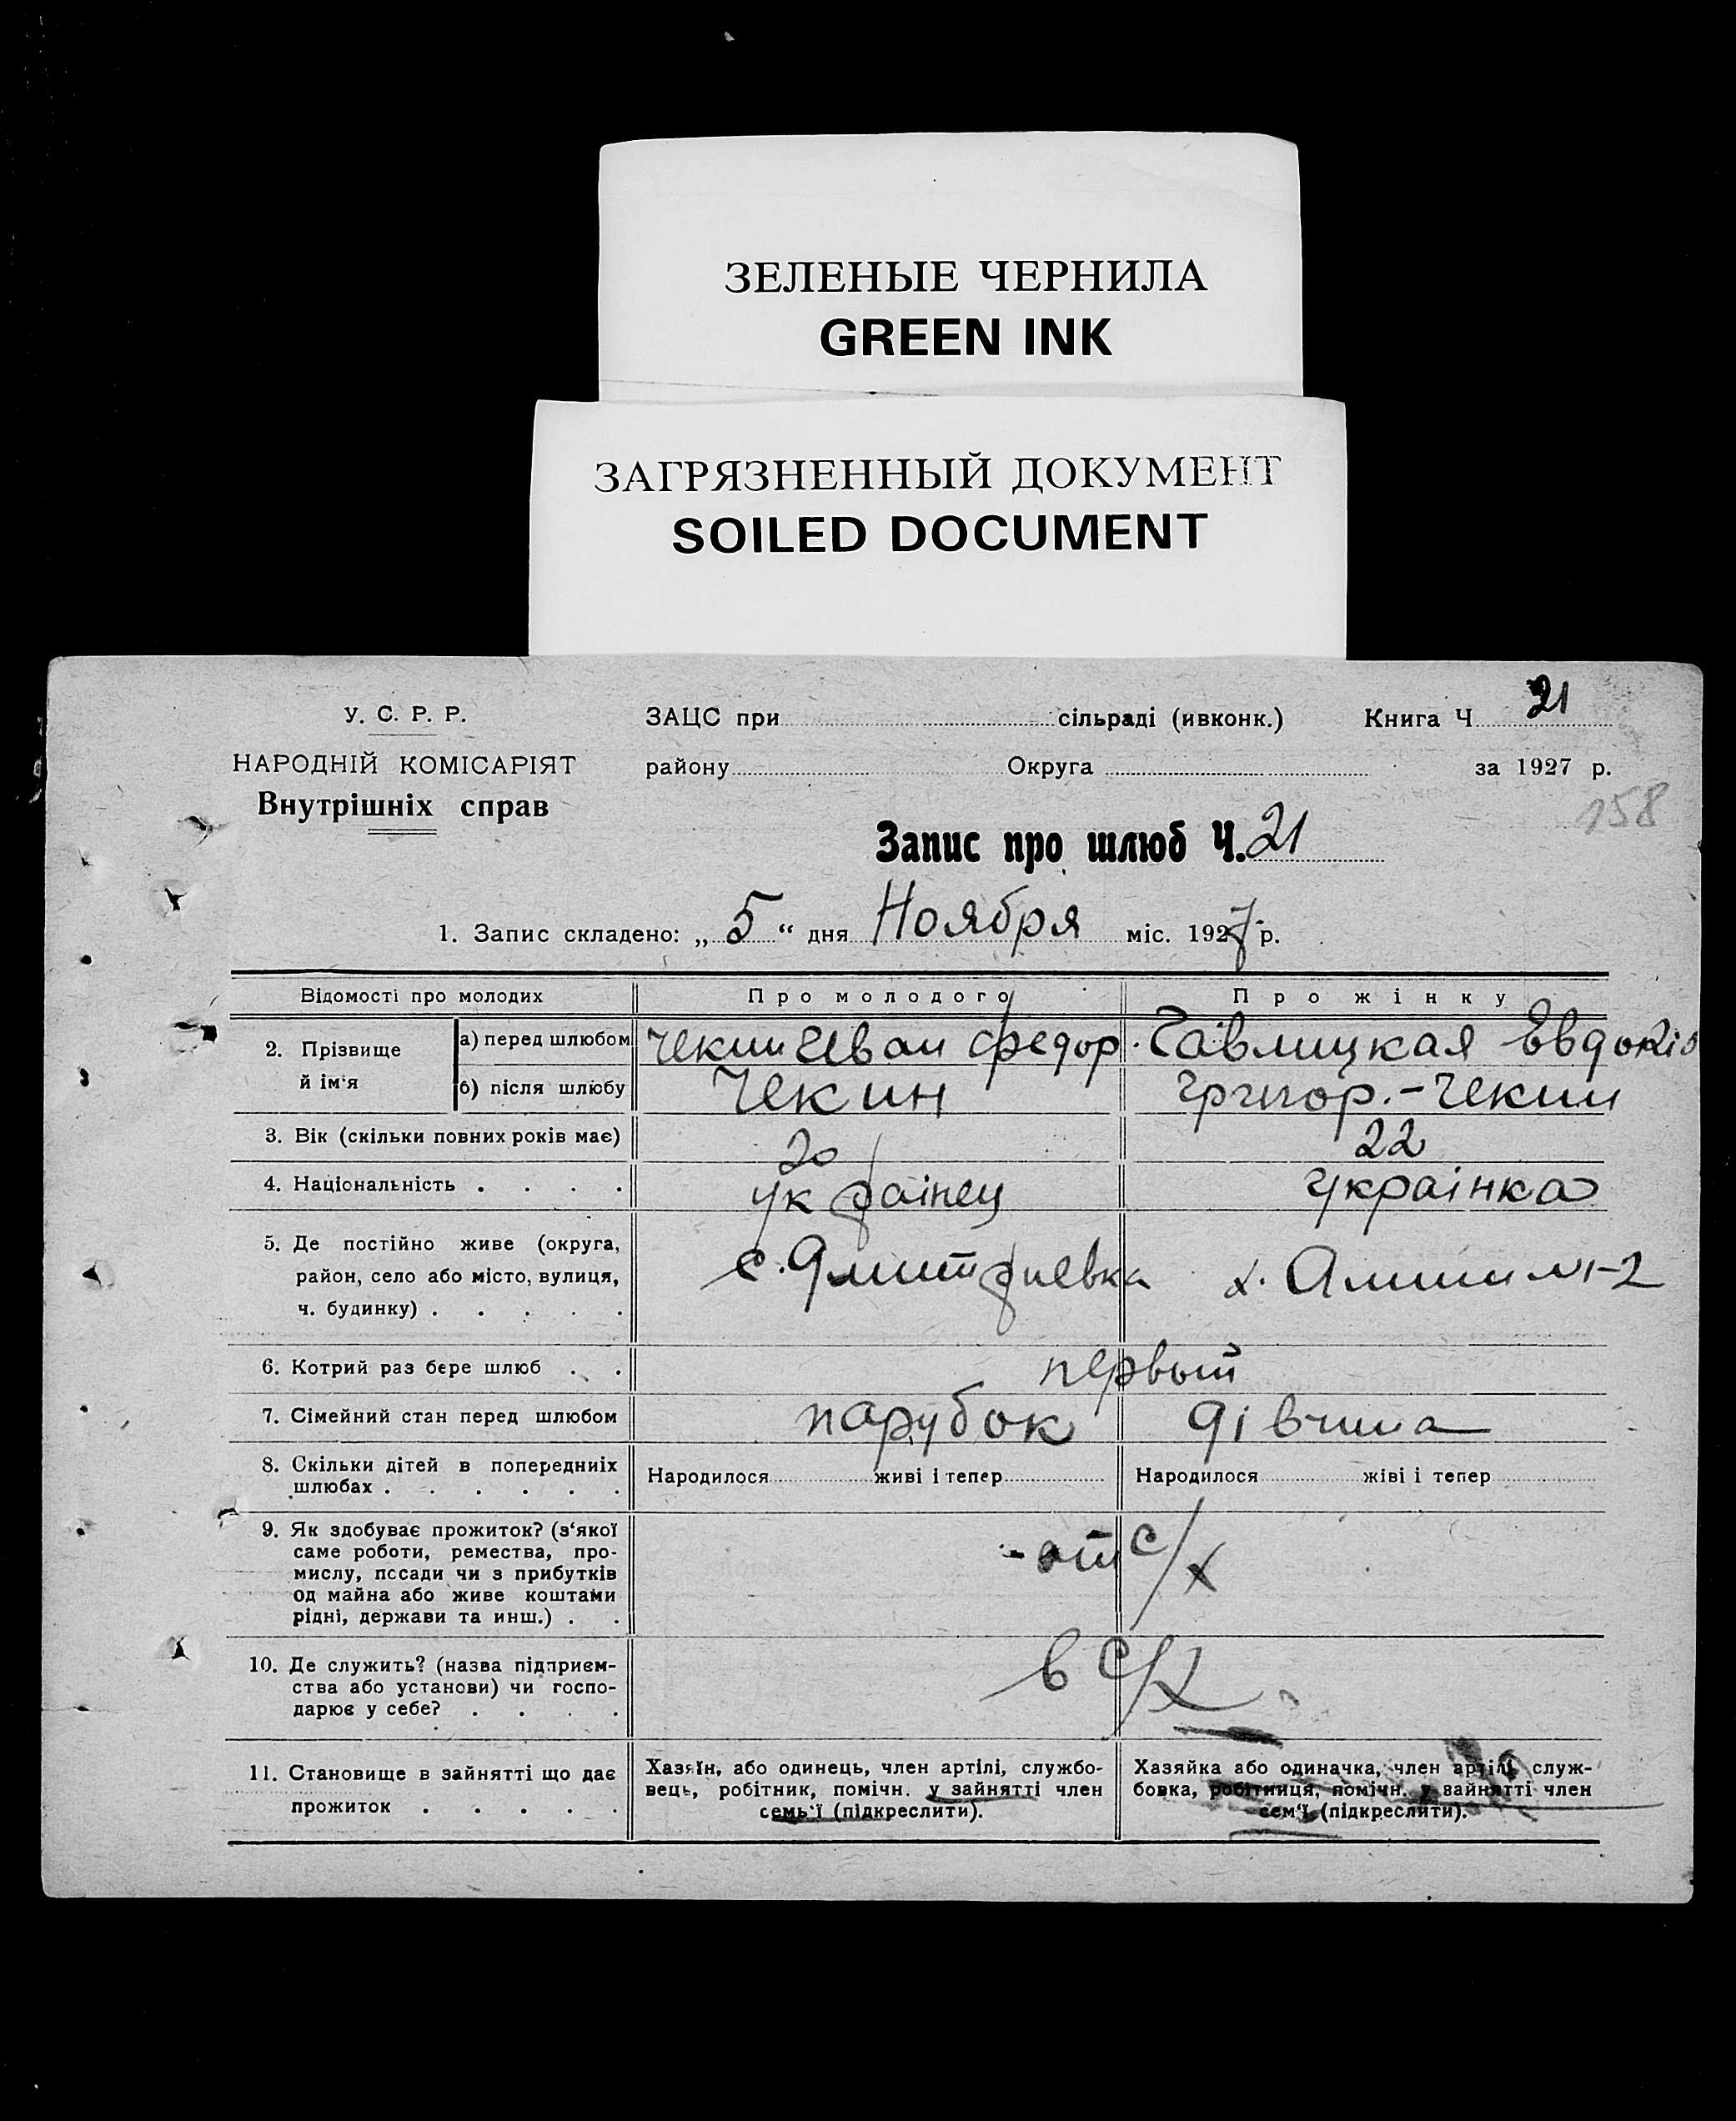 ЗЕЛЕНЫЕ ЧЕРНИЛА
GREEN INK
ЗАГРЯЗНЕННЫЙ ДОКУМЕНТ
SOILED DOCUMENT
У. С. Р. Р.
НАРОДНІЙ КОМІСАРІЯТ
Внутрішніх справ
ЗАЦС при сільраді (ивконк.) Книга Ч 21
району Округа за 1927 р.
158
Запис про шлюб Ч. 21
1. Запис складено: „5“ дня Ноября міс. 1927 р.
Відомості про молодих Про молодого Про жінку
2. Прізвище й ім‘я
а) перед шлюбом Чекин Иван Федор. Гавлицкая Евдокія
б) після шлюбу Чекин Григор.-Чекин
3. Вік (скільки повних років має) 20 22
4. Національність . . . . українец українка
5. Де постійно живе (округа,
район, село або місто, вулиця,
ч. будинку) . . . . .
с. Дмитриевка х. №-2
6. Котрий раз бере шлюб . . первый
7. Сімейний стан перед шлюбом парубок дівчина
8. Скільки дітей в попередниіх
шлюбах . . . . . .
Народилося живі і тепер Народилося жіві і тепер
9. Як здобуває прожиток? (з‘якої
саме роботи, ремества, про-
мислу, посади чи з прибутків
од майна або живе коштами
рідні, держави та инш.) . .
- от с/х
10. Де служить? (назва підприєм-
ства або установи) чи госпо-
дарює у себе? . . . .
в с/х
11. Становище в зайнятті що дає
прожиток . . . . .
Хазяїн, або одинець, член артілі, службо-
вець, робітник, помічн. у зайнятті член
семь‘ї (підкреслити).
Хазяйка або одиначка, член артілі, служ-
бовка, робітниця, помічн. у зайнятті член
сем‘ї (підкреслити).